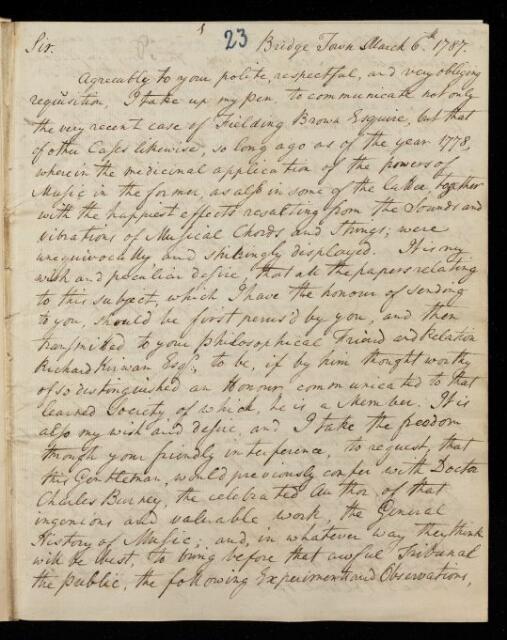 23
Sir. Bridge Town March 6th. 1787.
Agreeably to your polite, respectful, and very obliging
requisition, I take up my pen, to communicate not only
the very recent case of Fielding Brown Esquire, but that
of other Cases likewise, so long ago as of the year 1778,
wherein the medicinal application of the powers of
Music in the former, as also in some of the latter, together
with the happiest effects resulting from the Sounds and
vibrations of Musical Chords and Strings; were
unequivocally and strikingly displayed. It is my
wish and peculiar desire, that all the papers relating
to this subject, which I have the honour of sending
to you, should be first perus'd by you, and then
transmitted to your Philosophical Friend and Relation
Richard Kirwan Esqr., to be, if by him thought worthy
of so distinguished an Honour communicated to that
learned Society of which, he is a Member. It is
also my wish and desire, and I take the freedom
through your friendly interference, to request, that
this Gentleman, would previously confer with Doctor
Charles Burney, the celebrated Author, of that
ingenious and valuable work, the General
History of Music; and, in whatever way they think
will be best, to bring before that awful Tribunal
the public, the following Experiments and Observations,